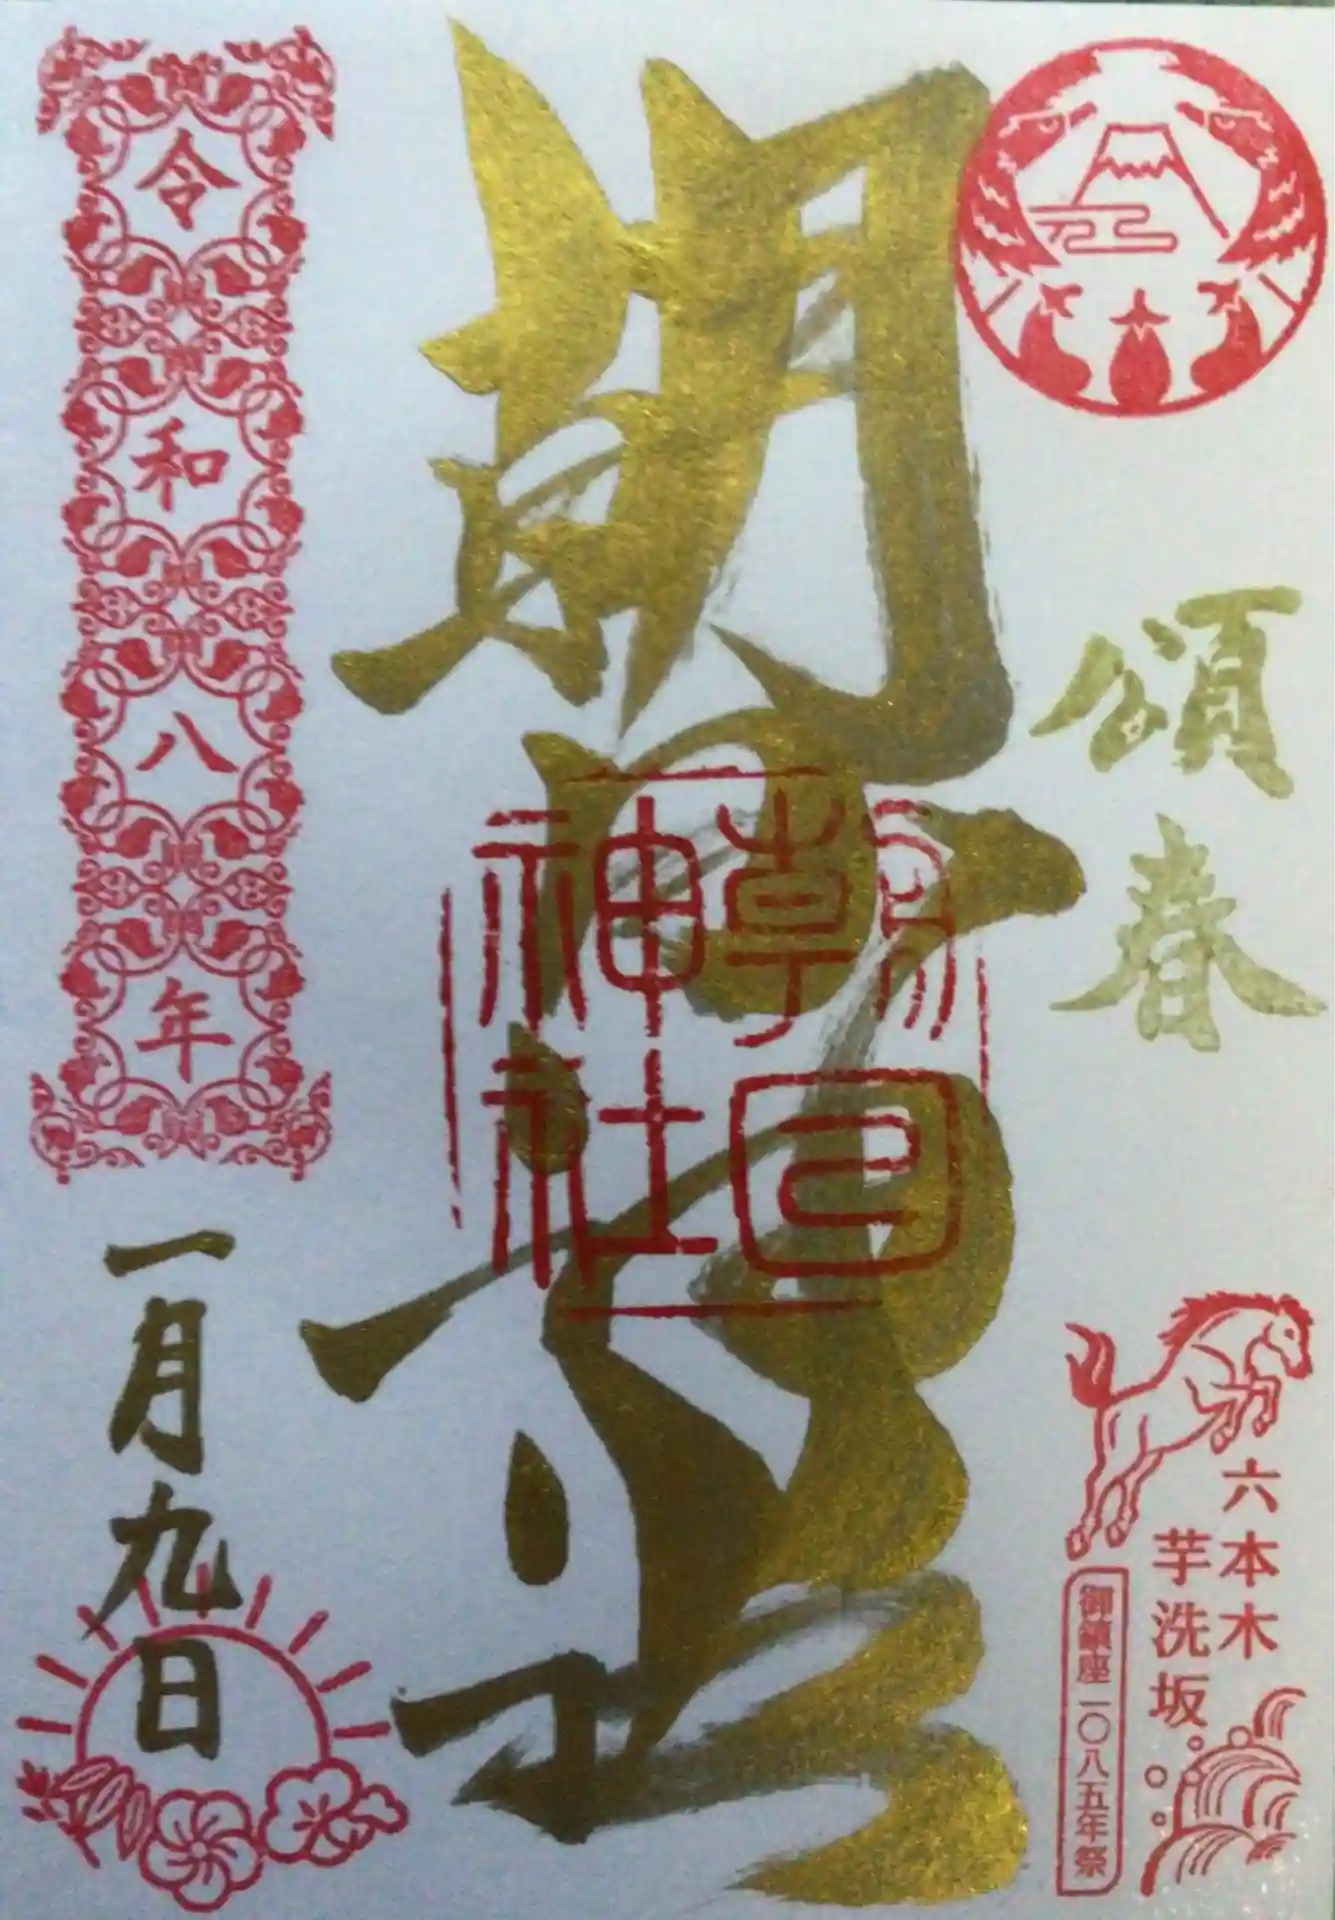 頌春
六本木
芋洗坂
御鎮座一〇八五年祭
朝日神社
朝日神社
令和八年
一月九日